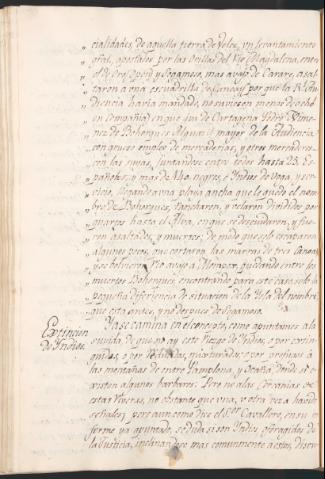 " cialidades, de aquella tierra de Velez, un levantamiento
" gral, apostados por las orillas del Rio Magdalena, entre
" el R. Oro, Opon y Sogamoso, mas avajo de Carare, asal-
" taron a una escuadrilla de Canoas, por que la R. Au-
" diencia havia mandado, no suviesen menos de ocho
" en compañia, en que iva de Cartagena Pedro Xime-
" nez de Bohorques Alguacil mayor de la Audiencia
" con grueso empleo de mercaderias, y otros mercaderes
" con las suyas, juntandose entre todos hasta 23. Es-
" pañoles, y mas de negros, e Yndios de voga, y ser-
" vicio, llegando a una playa ancha que le quedó el nom-
" bre de Bohorques, rancharon, y velaron divididos por
" quartos hasta el Alva, en que se descuidaron, y fue-
" ron asaltados, y muertos, de modo que solo escaparon
" algunos pocos, que cortaron las amarras de tres Canoas
" y se bolvieron Rio avajo a Mompox, quedando entre los
" muertos Bohorques, encontrando para este caso sola la
" pequeña diferencia de situacion de la Ysla del nombre,
" que esta antes, y no despues de Sogamoso.
Extincion
de Yndios
Ya se camina en el concepto, como apuntamos a la
suvida, de que no ay este riezgo de Yndios, o por extin-
guidos, o por minorados; o por profugos à
las montañas de entre Pamplona, y Ocaña, donde si e-
xisten algunos barbaros. Pero no a las cercanias de
estas riveras, no obstante que una, y otra vez a havido
señales; pero aun como dice el S.or Cavallero, en su in-
forme ya apuntado, se duda si son Yndios, o foragidos de
la Justicia, inclinandose mas comunmente a esto,